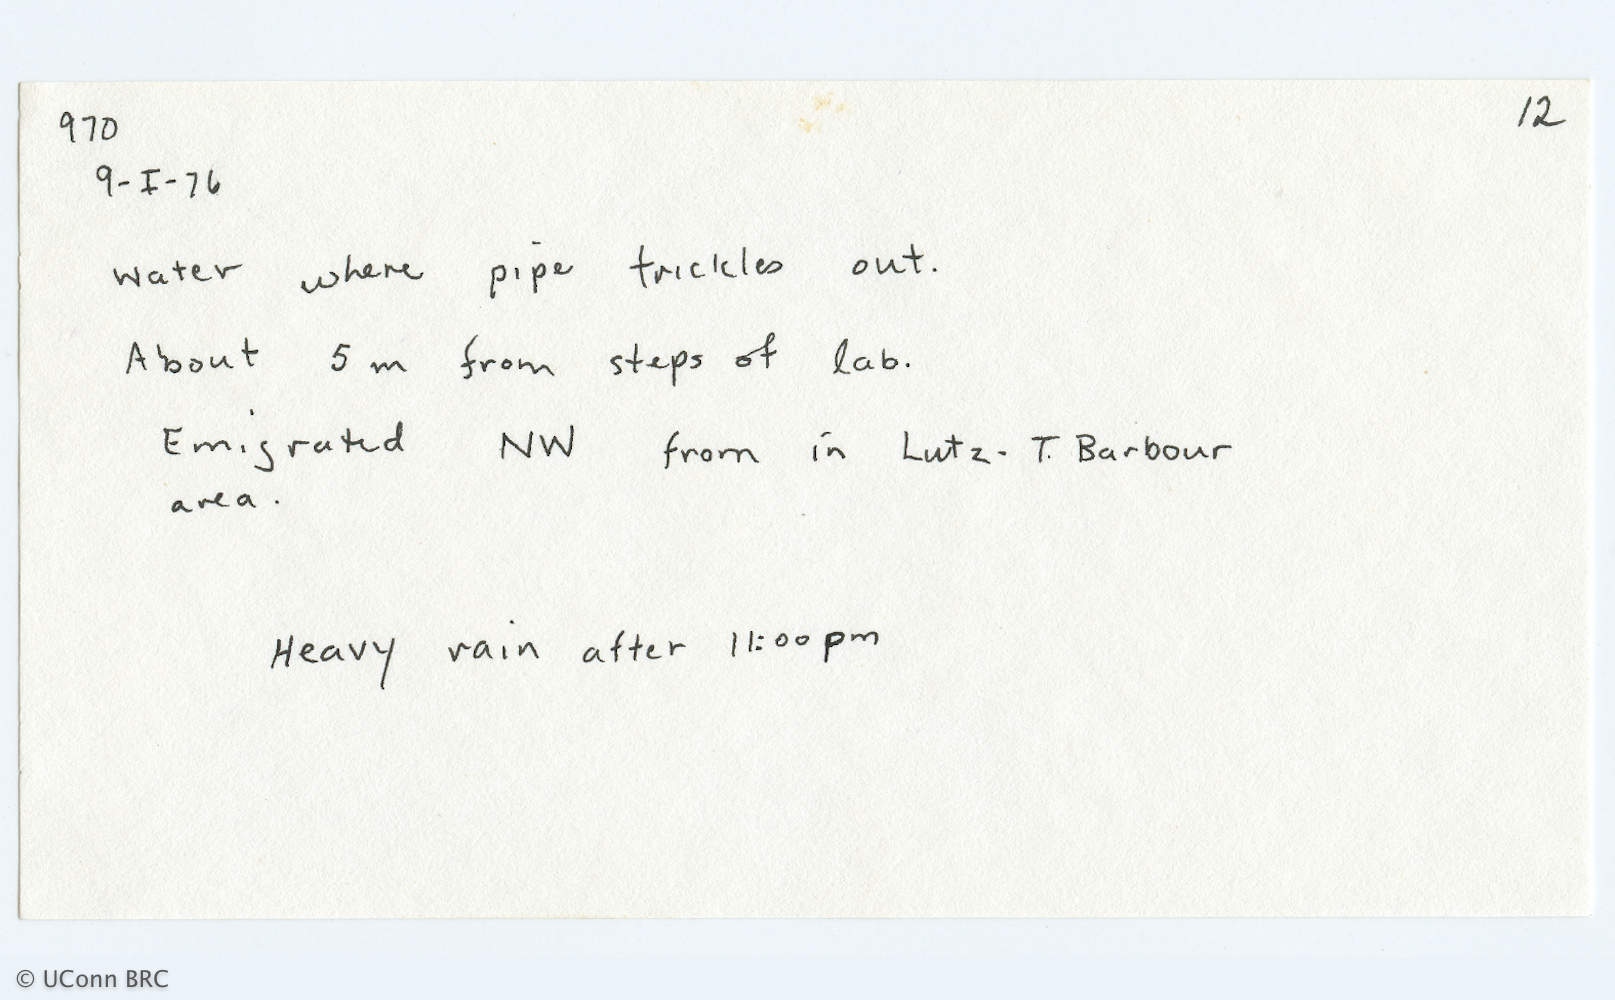 970
12
9-I-76
water where pipe trickles out.
About 5 m from steps of lab.
Emigrated NW from in Lutz-T. Barbour
area.
Heavy rain after 11:00 pm
© UConn BRC